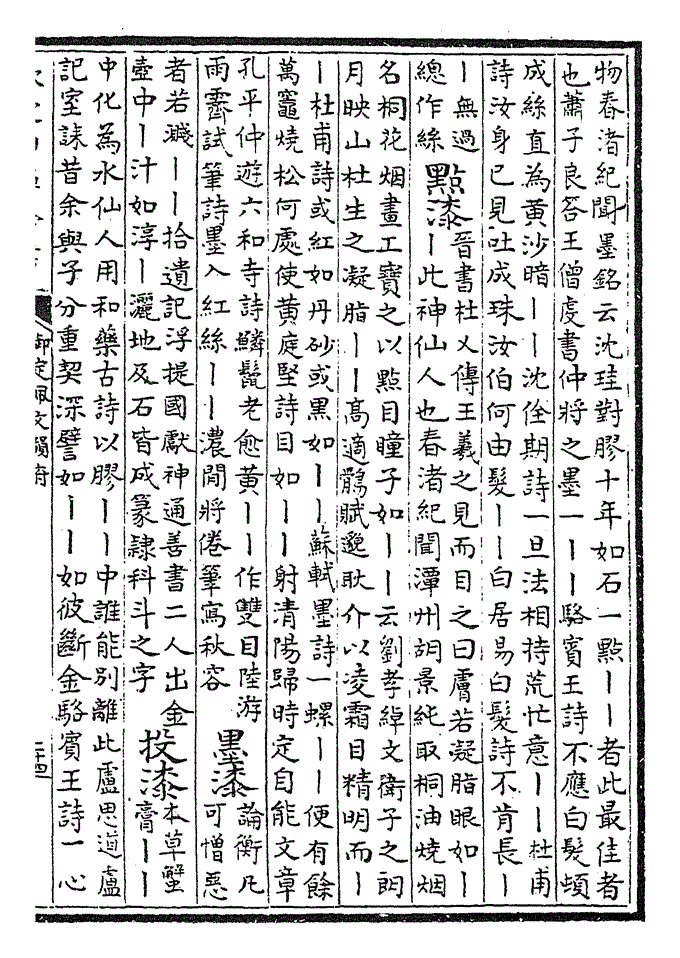 物春渚紀聞墨銘云沈珪對膠十年如石一點｜｜者此最佳者
也蕭子良荅王僧虔書仲將之墨一｜｜駱賓王詩不應白髮頓
成絲直為黄沙暗｜｜沈佺期詩一旦法相持荒忙意｜｜杜甫
詩汝身已見吐成珠汝伯何由髮｜｜白居易白髮詩不肯長｜
｜無過
總作絲
點漆
晉書杜乂傳王羲之見而目之曰膚若凝脂眼如｜
｜此神仙人也春渚紀聞潭州胡景純取桐油燒烟
名桐花烟畫工寶之以點目瞳子如｜｜云劉孝綽文衛子之朗
月映山杜生之凝脂｜｜高適鶻賦邈耿介以凌霜目精明而｜
｜杜甫詩或紅如丹砂或黒如｜｜蘇軾墨詩一螺｜｜便有餘
萬竈燒松何處使黄庭堅詩目如｜｜射清陽歸時定自能文章
孔平仲遊六和寺詩鱗鬣老愈黄｜｜作雙目陸游
雨霽試筆詩墨入紅絲｜｜濃閒將倦筆寫秋容
墨漆
論衡凡
可憎惡
者若濺｜｜拾遺記浮提國獻神通善書二人出金
壺中｜汁如淳｜灑地及石皆成篆隸科斗之字
投漆
本草蟹
膏｜｜
中化為水仙人用和藥古詩以膠｜｜中誰能別離此盧思道盧
記室誄昔余與子分重契深譬如｜｜如彼斷金駱賓王詩一心
御定佩文韻府
二十四